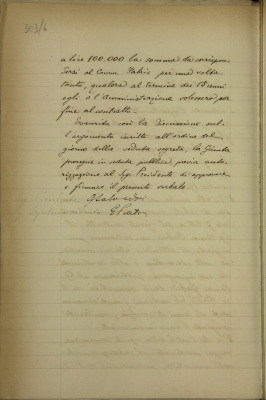 303/6
a lire 100.000 la somma da corrispon-
dersi al Comm. Fabris per una volta
tanto, qualora al termine dei 18 anni
egli o l'Amministrazione volessero por
fine al contratto.
Esaurita così la discussione sul-
l'argomento iscritto all'ordine del
giorno della seduta segreta, la Giunta
prosegue in seduta pubblica, previa auto-
rizzazione al Sig. Presidente di approvare
e firmare il presente verbale.